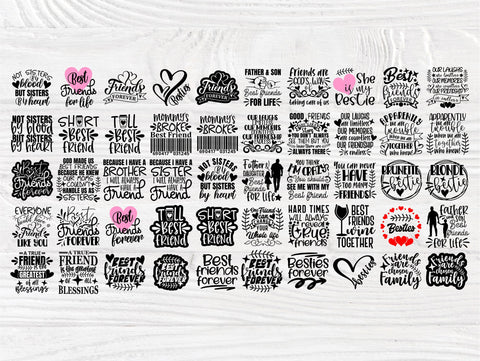 NOT SISTERS
BY
blood
BUT SISTERS
BY heart
Best
Friends
for life
Friends
FOREVER
Besties
Friends
FOREVER
FATHER & SON
Best friends
FOR LIFE
Friends are
GOD'S WAY
OF
taking care of us
She
is my
BESTIE
Best
Friends
OUR LAUGHS
are limitless
OUR MEMORIES
are countless
OUR FRIENDSHIP
is endless
NOT SISTERS
BY BLOOD
BUT SISTERS
BY HEART
SHORT
BEST
FRIEND
TALL
BEST
FRIEND
MOMMY'S
BROKE
Best Friend
MOMMY'S
BROKE
Best Friend
OUR LAUGHS
OUR MEMORIES
GOOD FRIENDS
are like
STARS
OUR LAUGHS
ARE LIMITLESS
OUR MEMORIES
ARE COUNTLESS
OUR FRIENDSHIP
IS ENDLESS
APPARENTLY
we are
trouble
when we are
together
APPARENTLY
WE ARE
trouble
WHEN WE ARE
together
Best
Friends
forever
GOD MADE US
BEST FRIENDS
BECAUSE HE KNEW
OUR MOMS
COULDN'T
HANDLE US AS
SISTERS
BECAUSE I HAVE A
BROTHER
I WILL ALWAYS
HAVE A
FRIEND
BECAUSE I HAVE A
SISTER
I WILL ALWAYS
HAVE A
FRIEND
NOT SISTERS
BY
blood
BUT SISTERS
BY heart
Father &
Daughter
Best
friends
FOR LIFE
YOU THINK
I'M CRAZY
You should
SEE ME WITH
Best Friend
YOU CAN
NEVER
HAVE
TOO MANY
FRIENDS!
BRUNETTE
Bestie
BLONDE
Bestie
EVERYONE
Friend
LIKE YOU
Best
Friends
forever
Best
Friends
forever
TALL
BEST
FRIEND
SHORT
BEST
FRIEND
HARD TIMES
WILL ALWAYS
REVEAL
true
FRIENDS
BEST
FRIENDS
wine
TOGETHER
Besties
Father
& son
Best
Friends
FOR LIFE
A TRUE
FRIEND
IS THE
GREATEST
of all
BLESSINGS
A TRUE
FRIEND
is the greatest
of all
BLESSINGS
BEST
friends
FOREVER
BEST
friends
FOREVER
Best
friends
forever
BEST
friends
FOREVER
Besties
forever
besties
Friends
ARE
chosen
Family
Friends
ARE
chosen
Family